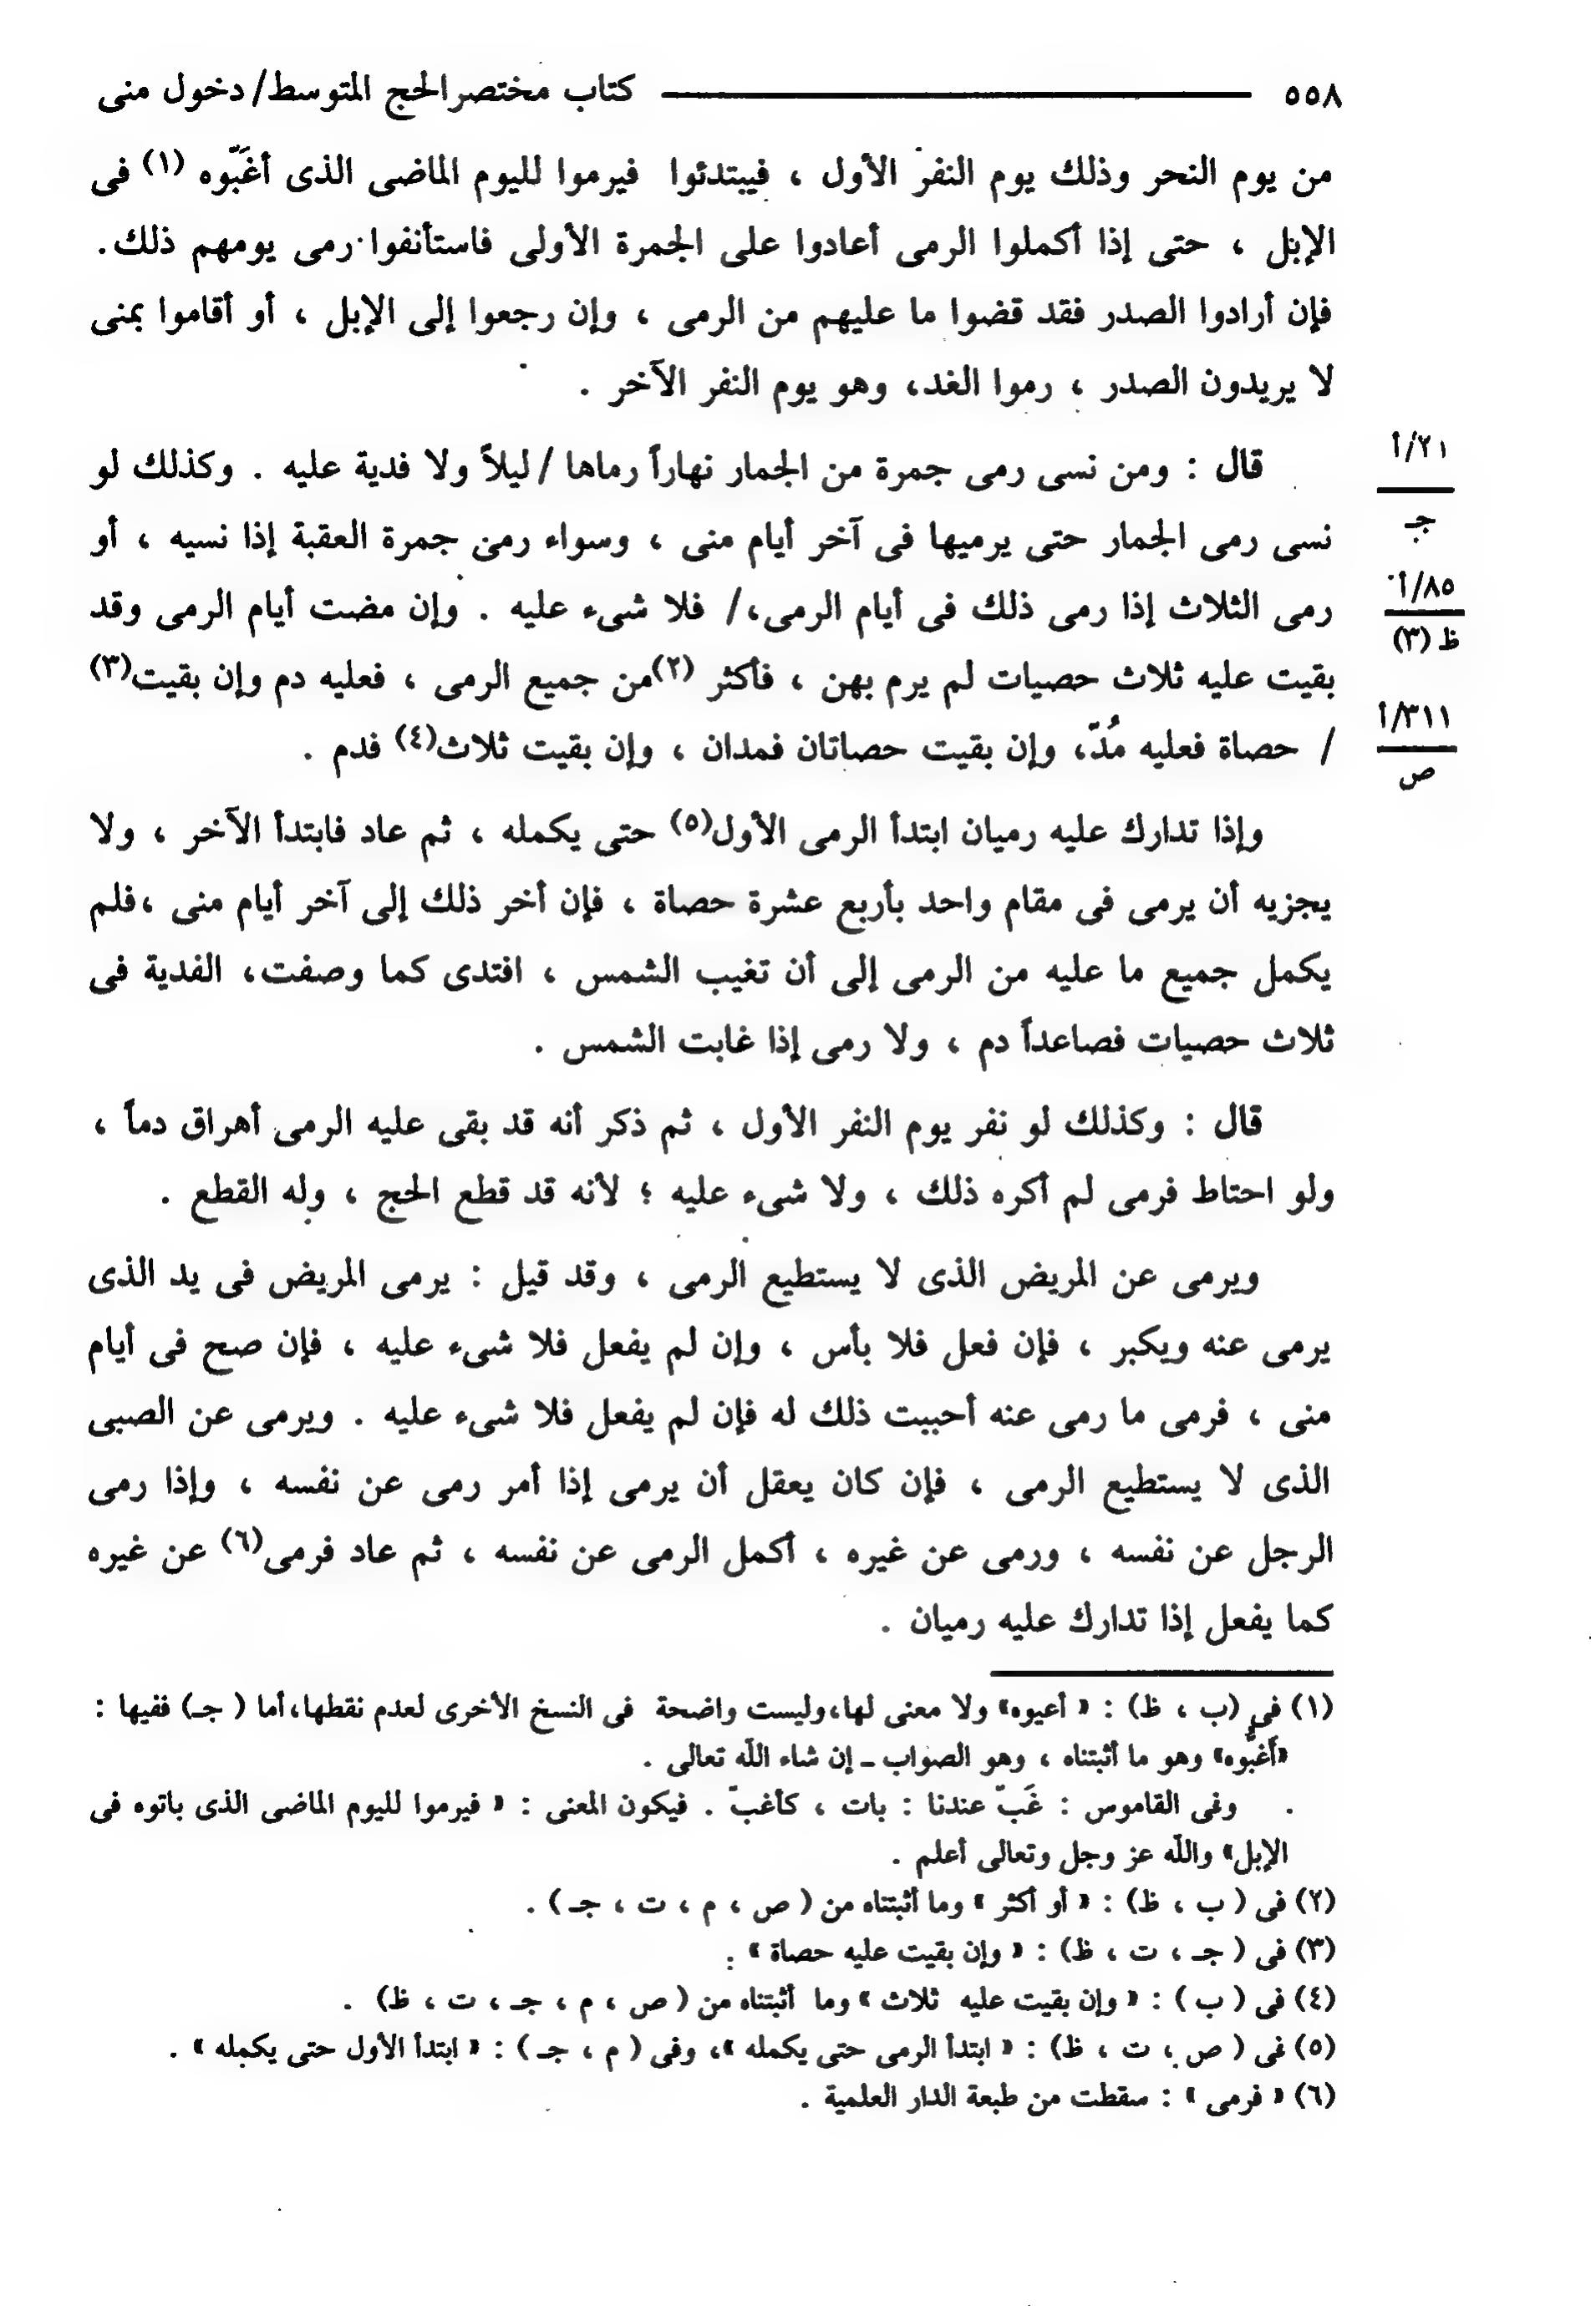 ٥٥٨ كتاب مختصر الحج المتوسط/ دخول منى
من يوم النحر وذلك يوم النفر الأول ، فيبتدئوا فيرموا لليوم الماضى الذى أغَبّوه (١) فى
الإبل ، حتى إذا أكملوا الرمى أعادوا على الجمرة الأولى فاستأنفوا رمى يومهم ذلك.
فإن أرادوا الصدر فقد قضوا ما عليهم من الرمى ، وإن رجعوا إلى الإبل ، أو أقاموا بمنى
لا يريدون الصدر ، رموا الغد، وهو يوم النفر الآخر .
قال : ومن نسى رمى جمرة من الجمار نهاراً رماها / ليلاً ولا فدية عليه . وكذلك لو
٢١/أ
جـ
نسى رمى الجمار حتى يرميها فى آخر أيام منى ، وسواء رمى جمرة العقبة إذا نسيه ، أو
رمى الثلاث إذا رمى ذلك فى أيام الرمى،/ فلا شىء عليه . وإن مضت أيام الرمى وقد
٨٥/أ
ظ (٣)
بقيت عليه ثلاث حصيات لم يرم بهن ، فأكثر (٢)من جميع الرمى ، فعليه دم وإن بقيت(٣)
/ حصاة فعليه مُدّ، وإن بقيت حصاتان فمدان ، وإن بقيت ثلاث(٤) فدم .
٣١١/أ
ص
وإذا تدارك عليه رميان ابتدأ الرمى الأول(٥) حتى يكمله ، ثم عاد فابتدأ الآخر ، ولا
يجزيه أن يرمى فى مقام واحد بأربع عشرة حصاة ، فإن أخر ذلك إلى آخر أيام منى ،فلم
يكمل جميع ما عليه من الرمى إلى أن تغيب الشمس ، افتدى كما وصفت، الفدية فى
ثلاث حصيات فصاعداً دم ، ولا رمى إذا غابت الشمس .
قال : وكذلك لو نفر يوم النفر الأول ، ثم ذكر أنه قد بقى عليه الرمى أهراق دماً ،
ولو احتاط فرمى لم أكره ذلك ، ولا شىء عليه ؛ لأنه قد قطع الحج ، وله القطع .
ويرمى عن المريض الذى لا يستطيع الرمى ، وقد قيل : يرمى المريض فى يد الذى
يرمى عنه ويكبر ، فإن فعل فلا بأس ، وإن لم يفعل فلا شىء عليه ، فإن صح فى أيام
منى ، فرمى ما رمى عنه أحببت ذلك له فإن لم يفعل فلا شىء عليه . ويرمى عن الصبى
الذى لا يستطيع الرمى ، فإن كان يعقل أن يرمى إذا أمر رمى عن نفسه ، وإذا رمى
الرجل عن نفسه ، ورمى عن غيره ، أكمل الرمى عن نفسه ، ثم عاد فرمى(٦) عن غيره
كما يفعل إذا تدارك عليه رميان .
(١) فى (ب ، ظ) : « أعيوه» ولا معنى لها،وليست واضحة فى النسخ الأخرى لعدم نقطها،أما ( جـ) ففيها :
«أَغبُّوه» وهو ما أثبتناه ، وهو الصواب ـ إن شاء اللّه تعالى .
وفى القاموس : غَبّ عندنا : بات ، كأغبّ . فيكون المعنى : « فيرموا لليوم الماضى الذى باتوه فى
الإبل» واللّه عز وجل وتعالى أعلم .
(٢) فى ( ب ، ظ) : « أو أكثر » وما أثبتناه من ( ص ، م ، ت ، جـ ) .
(٣) فى ( جـ ، ت ، ظ) : « وإن بقيت عليه حصاة » .
(٤) فى ( ب ) : « وإن بقيت عليه ثلاث » وما أثبتناه من ( ص ، م ، جـ ، ت ، ظ) .
(٥) فى ( ص ، ت ، ظ) : « ابتدأ الرمى حتى يكمله »، وفى ( م ، جـ ) : « ابتدأ الأول حتى يكمله » .
(٦) « فرمى » : سقطت من طبعة الدار العلمية .